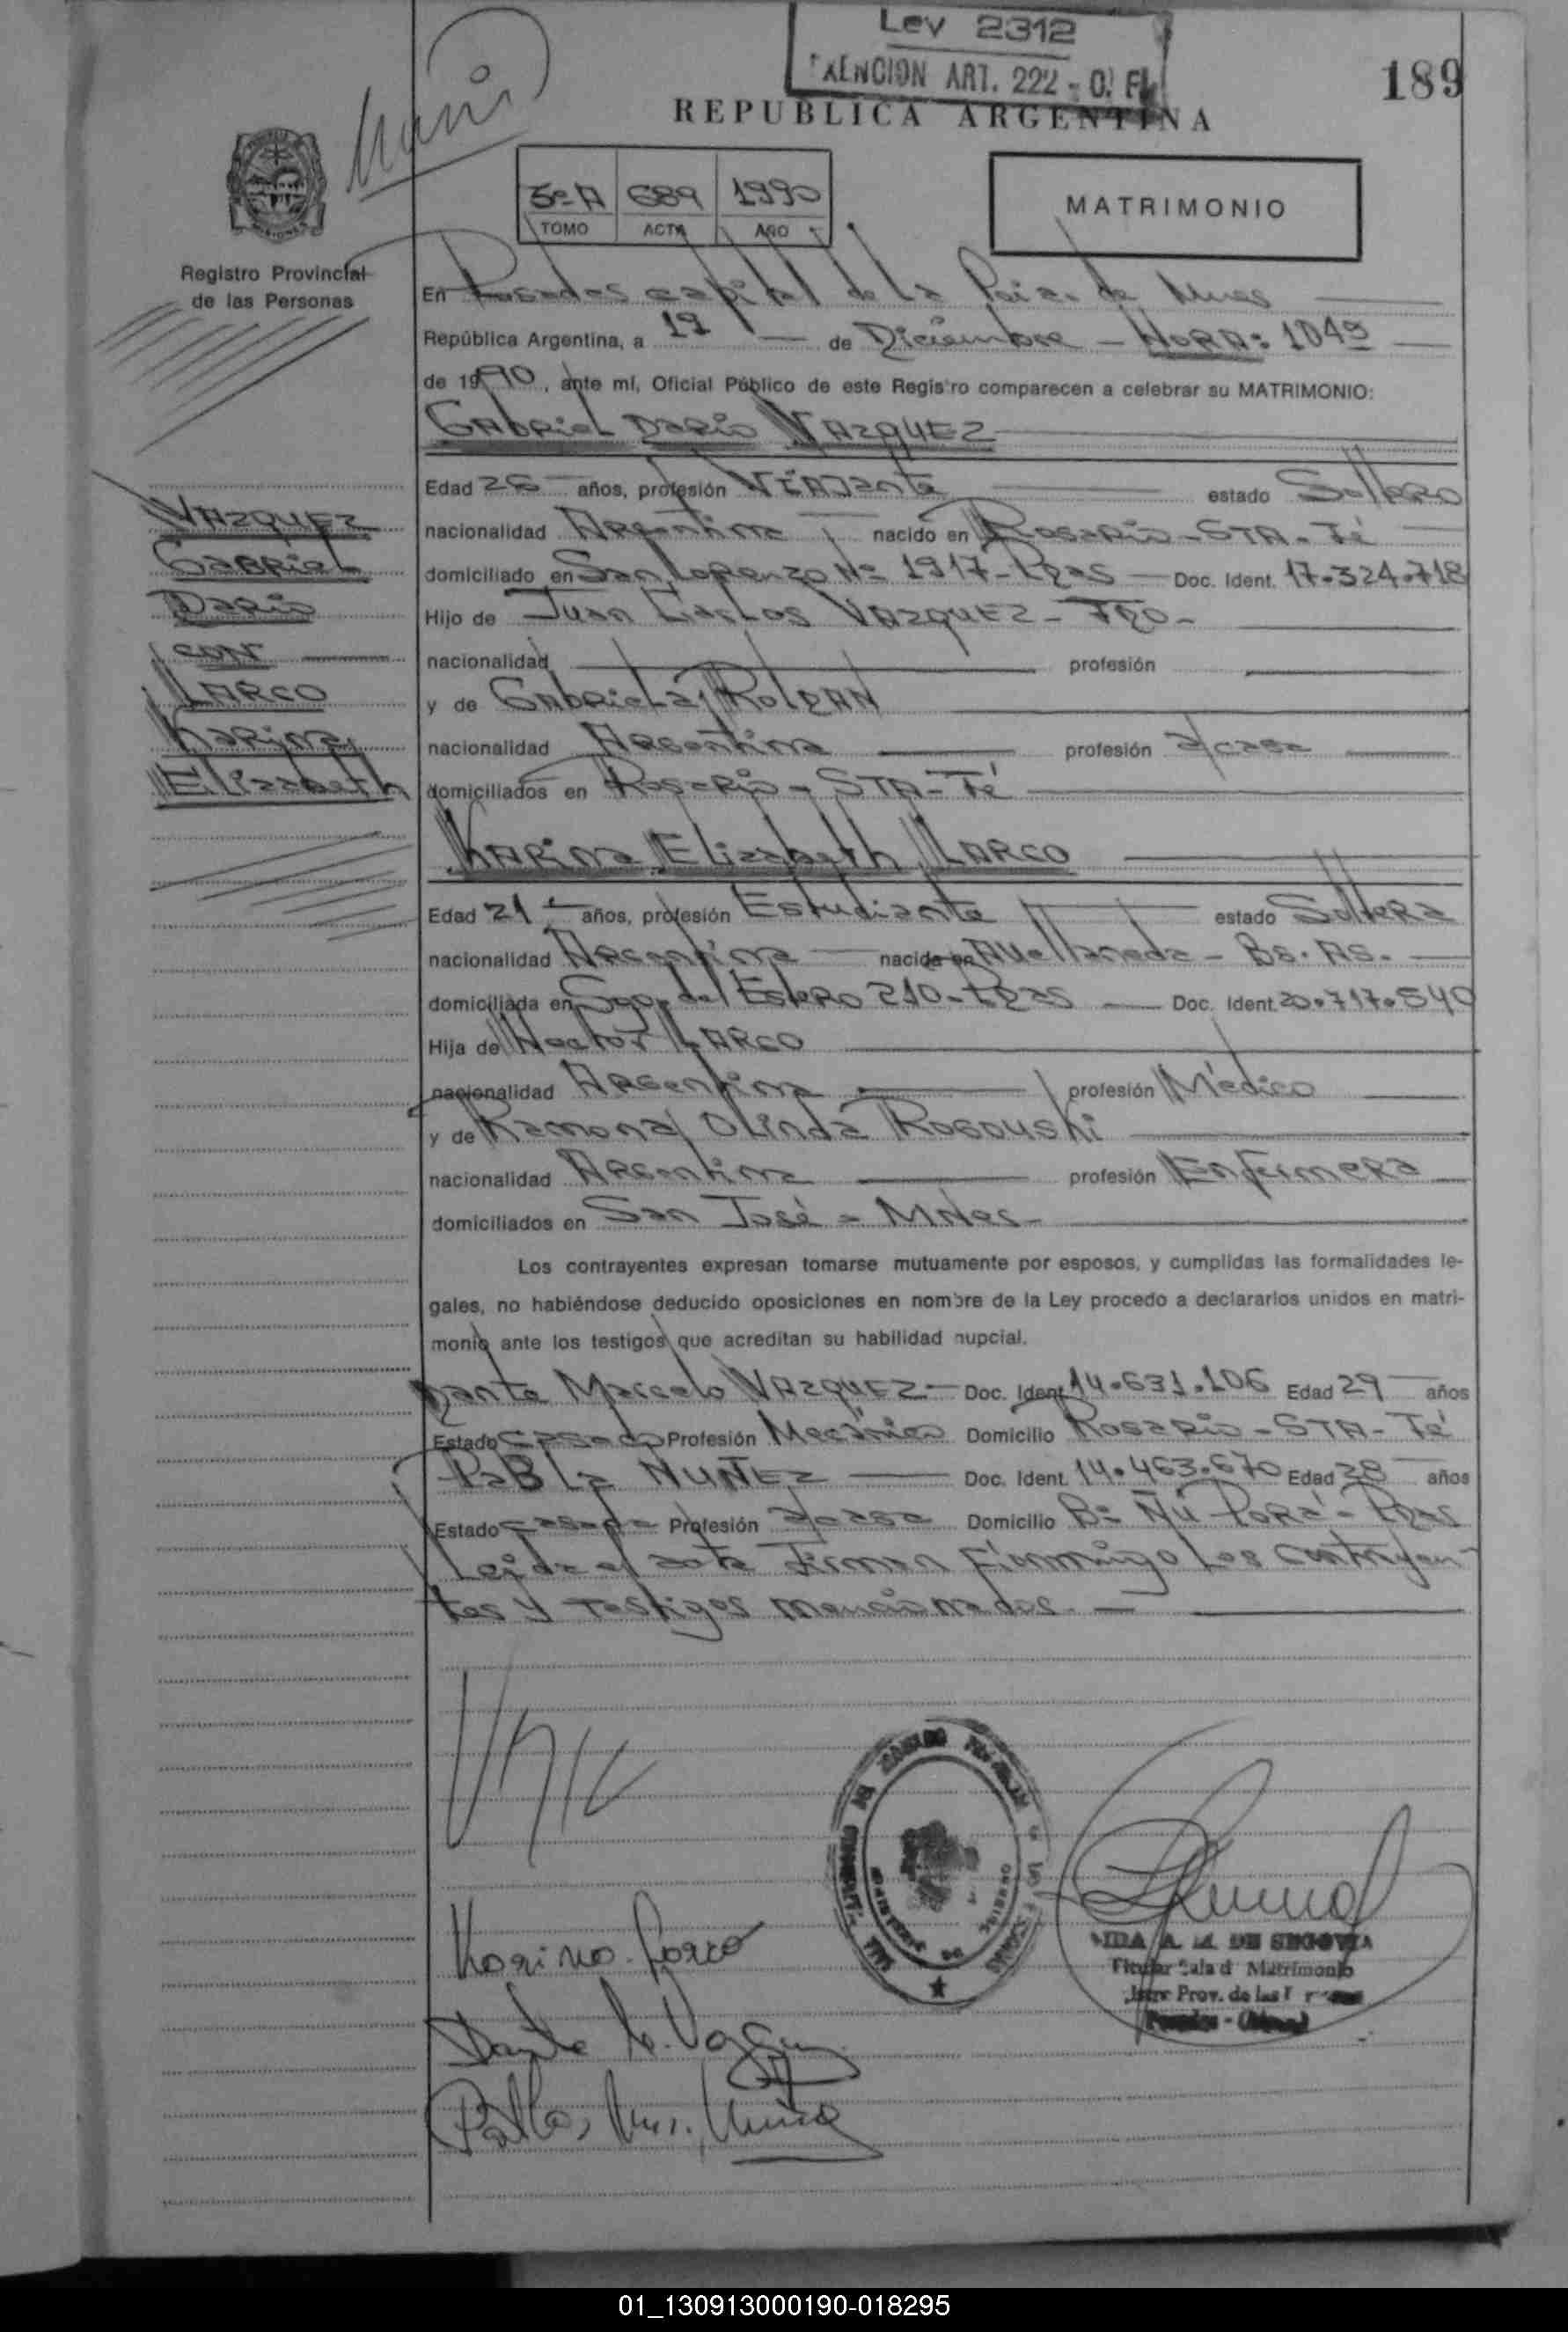 Ley 2312
EXENCION ART. 222 - O. F.
189
REPUBLICA ARGENTINA
5º A 689 1990
TOMO ACTA AÑO
MATRIMONIO
Registro Provincial
de las Personas
En Posadas capital de la Pcia. de Mnes
República Argentina, a 19 de Diciembre - HORA: 1049
de 1990, ante mí, Oficial Público de este Registro comparecen a celebrar su MATRIMONIO:
Gabriel Dario VAZQUEZ
VAZQUEZ
Gabriel
Dario
con
LARCO
Karina
Elizabeth
Edad 26 años, profesión Viajante estado Soltero
nacionalidad Argentina nacido en Rosario - STA - Fé
domiciliado en San Lorenzo Nº 1917 - Pdas Doc. Ident. 17.324.718
Hijo de Juan Carlos VAZQUEZ - Fdo -
nacionalidad profesión
y de Gabriela ROLDAN
nacionalidad Argentina profesión a/casa
domiciliados en Rosario - STA - Fé
Karina Elizabeth LARCO
Edad 21 años, profesión Estudiante estado Soltera
nacionalidad Argentina nacida en Avellaneda - Bs. As.
domiciliada en Sgo. del Estero 210 - Pdas Doc. Ident. 20.717.540
Hija de Hector LARCO
nacionalidad Argentina profesión Médico
y de Ramona Olinda
nacionalidad Argentina profesión Enfermera
domiciliados en San José - Mnes -
Los contrayentes expresan tomarse mutuamente por esposos, y cumplidas las formalidades le-
gales, no habiéndose deducido oposiciones en nombre de la Ley procedo a declararlos unidos en matri-
monio ante los testigos que acreditan su habilidad nupcial.
Dante Marcelo VAZQUEZ - Doc. Ident. 14.631.106 Edad 29 años
Estado casado Profesión Mecánico Domicilio Rosario - STA - Fé
Pabla NUÑEZ Doc. Ident. 14.463.670 Edad 28 años
Estado casada Profesión a/casa Domicilio Bº Ñu Porá - Pdas
Leida el acta firman conmigo los contrayen-
tes y testigos mencionados.
Karina Larco
A. M. DE SEGOVIA
Titular Sala d Matrimonio
Prov. de las
01_130913000190-018295